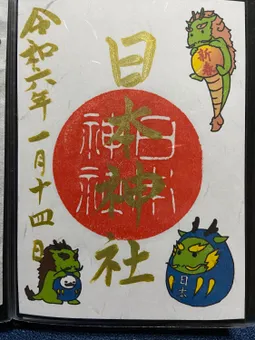 新春
日本神社
日本
神社
令和六年一月十四日